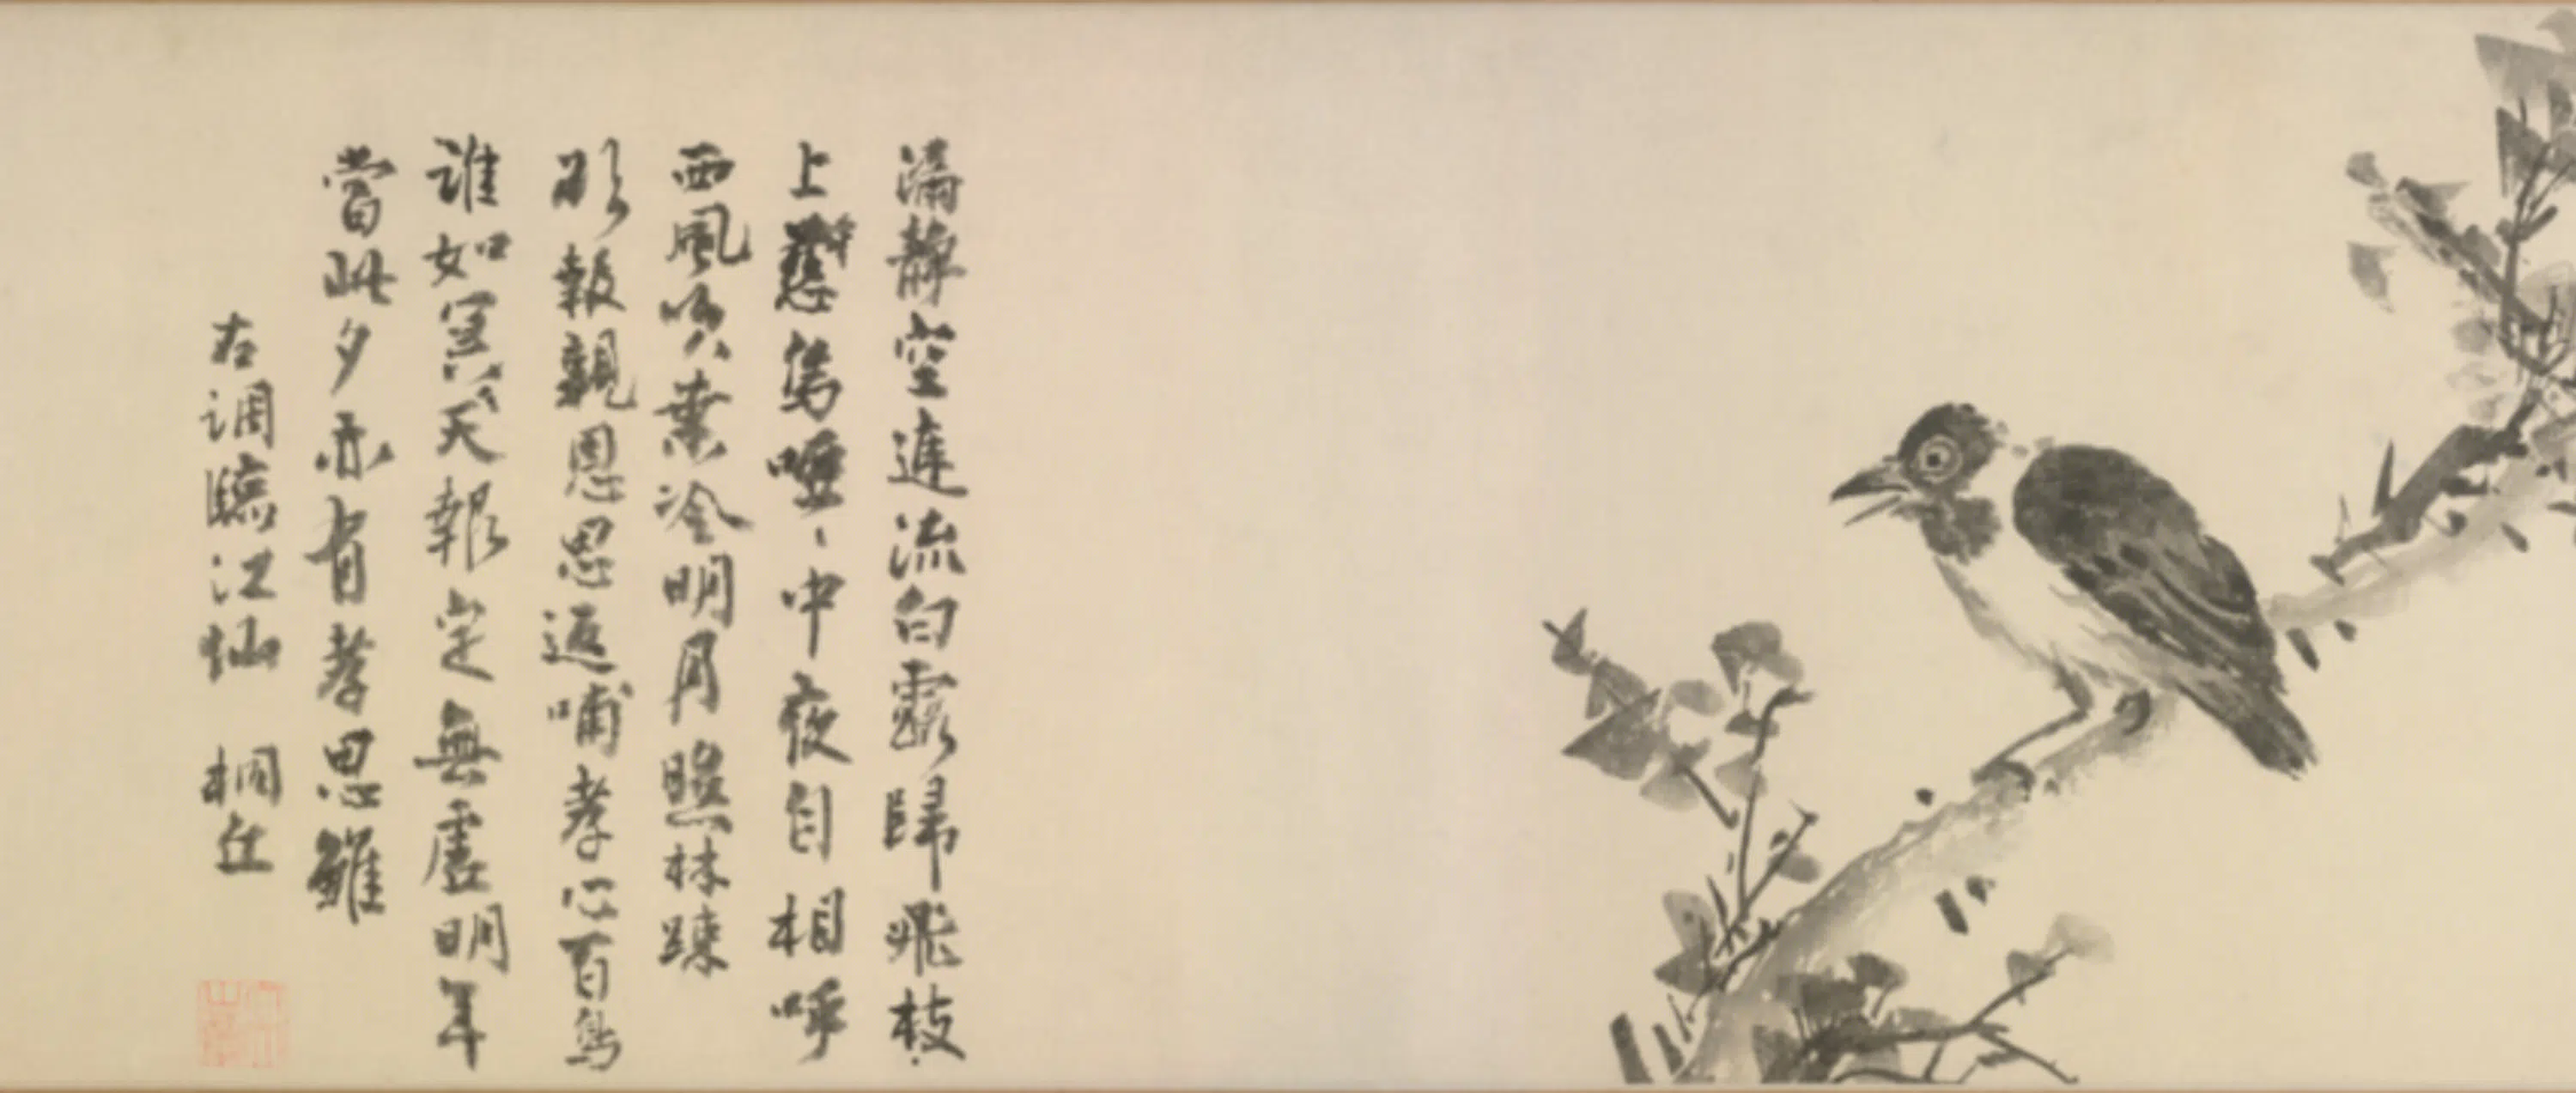 漏靜空庭流白露歸飛枝
上慈烏啞、中夜自相呼
西風吹葉冷明月照林踈
欲報親恩思返哺孝心百鳥
誰如冥〻天報定無虛明年
當此夕亦有孝思雛
右調臨江仙 桐